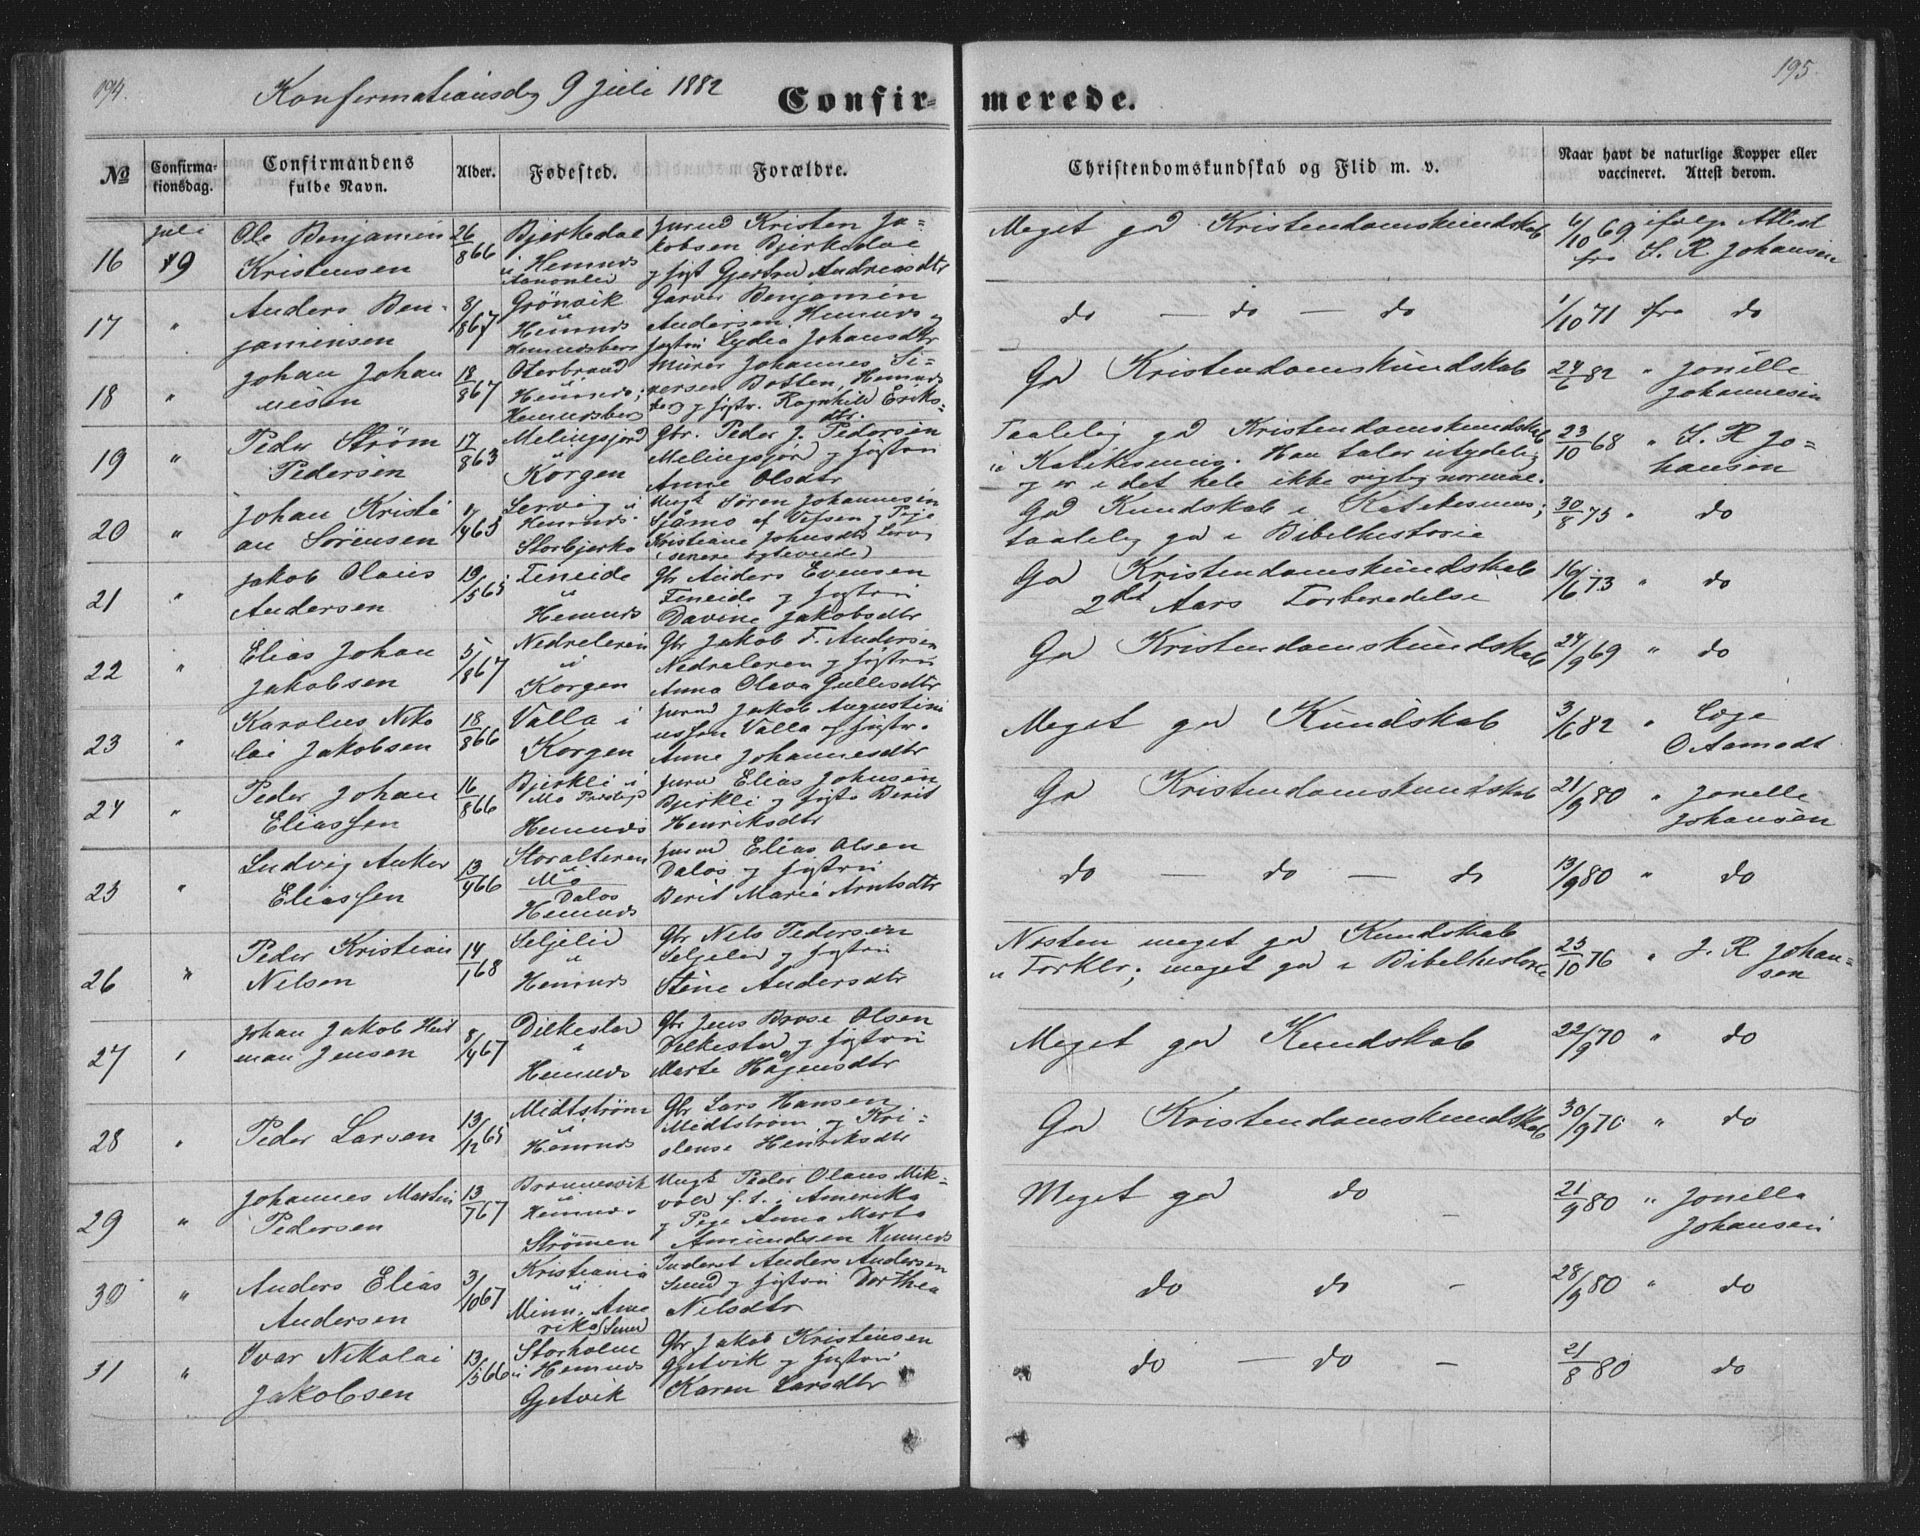 194.
Konfirmationsdag 9 juli 1882
Confir-
merede.
195.
№
Confirma-
tionsdag.
Confirmandens
fulde Navn.
Alder.
Fødested.
Forældre.
Christendomskundskab og Flid m. v.
Naar havt de naturlige Kopper eller
vaccineret. Attest derom.
16
juli
9
Ole Benjamin
Kristensen
26/8 66
Bjerkedal
i Hemnes
Kristen Ja-
kobsen Bjerkedal
og Andreasdtr
Meget god Kristendomskundskab
6/10 69 ifølge Attest
fra J. R. Johansen
17
"
Anders Ben-
jaminsen
8/1 867
Grønvik
i
Hemnes
Hemnesberg
Garver Benjamin
Andersen Hemnes og
Lydia Johansdtr
do — do — do
1/10 71 fra do
18
"
Johan Johan
nesen
18/8 67
Oterbrand
Hemnes;
Hemnesberg
Murer Johannes Si-
versen Botten, Hemnes
berg og hustr. Ragnhild Eriks-
dtr.
God Kristendomskundskab
24/6 82 " Jonille
Johannesen
19
"
Peder Strøm
Pedersen
17/8 63
i
Korgen
Gbr. Peder J. Pedersen
og
Anne Olsdtr
Taalelig god Kristendomskundskab
i Katekismus. Han taler utydelig
og er i det hele ikke rigtig normal.
23/10 68 " J. R. Jo-
hansen
20
"
Johan Kristi
an Sørensen
Hemnes.
Storbjerka
Ungk Søren Johannesen
Sjåmo af Vefsen og Pige
Kristiane Johnsdtr
(senere ægteviede)
God Kundskab i Katekismus;
taalelig god i Bibelhistorie
30/8 75 " do
21
"
Jakob Olaus
Andersen
19/5 65
Leneide
i
Hemnes
Gbr Anders Evensen
Leneide og
Davine Jakobsdtr
God Kristendomskundskab
2det Aars Forberedelse
16/6 73 " do
22
"
Elias Johan
Jakobsen
5/8 67
Nedreleren
i
Korgen
Gbr Jakob F. Andersen
Nedreleren og
Anna Olava Gullesdtr
God Kristendomskundskab
24/9 69 " do
23
"
Karolus Niko
lai Jakobsen
18/8 66
Valla i
Korgen
Jakob Augustini
ussen Valla og
Anne Johannesdtr
Meget god Kundskab
3/6 82 " Læge
O Aamodt
24
"
Peder Johan
Eliassen
16/8 66
Bjerkli i
Mo Prstgj
Hemnes
Elias Johnsen
Bjerkli og Berit
Henriksdtr
God Kristendomskundskab
21/9 80 " Jonelle
Johansen
25
"
Ludvig Anker
Eliassen
13/4 66
Storalteren
i
Mo
Dalos
Hemnes
Elias Olsen
Dalos og
Berit Maria Arntsdtr
do — do — do
13/9 80 " do
26
"
Peder Kristian
Nilsen
14/1 68
Seljelid
i
Hemnes
Gbr Nils Pedersen
Seljelid og
Stine Andersdtr
Næsten meget god Kundskab
i Forklr; meget god i Bibelhistorie
25/10 76 " J. R. Johan-
sen
27
"
Johan Jakob
Jensen
8/4 67
Dilkestad
i
Hemnes
Gbr Jens Brose Olsen
Dilkestad og
Marte Hågensdtr
Meget god Kundskab
22/9 70 " do
28
"
Peder Larsen
13/12 65
Midtstrøm
i
Hemnes
Gbr Lars Hansen
Midtstrøm og Kri-
olense Henriksdtr
God Kristendomskundskab
30/9 70 " do
29
"
Johannes Martin
Pedersen
13/7 67
i
Hemnes
Strømmen
Ungk Peder Olaus Mik-
vold f. t. i Amerika
og Pige Anna Marta
Amundsen Hemnes
Meget god do —
21/9 80 " Jonella
Johansen
30
"
Anders Elias
Andersen
3/10 67
Kristiania
i
Minn. Ame
rika (Sund)
Inderst Anders Andersen
Sund og Dorthea
Nilsdtr
do do —
28/9 80 " do
31
"
Ivar Nikolai
Jakobsen
13/5 66
Storholm
i Hemnes
Gjetvik
Gbr Jakob Kristensen
Gjetvik og
Karen Larsdtr
do — do —
21/8 80 do